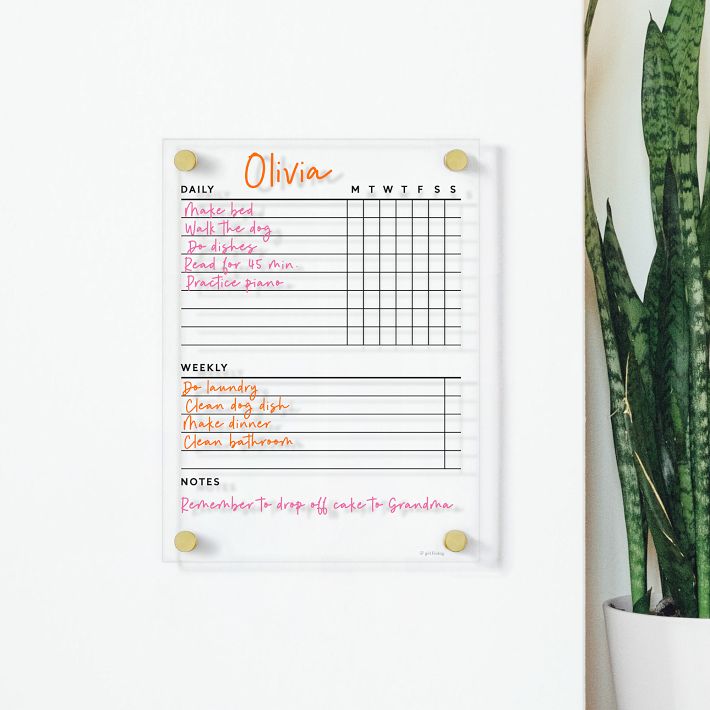 Olivia
DAILY M T W T F S S
Make bed
Walk the dog
Do dishes
Read for 45 min.
Practice piano
WEEKLY
Do laundry
Clean dog dish
Make dinner
Clean bathroom
NOTES
Remember to drop off cake to Grandma